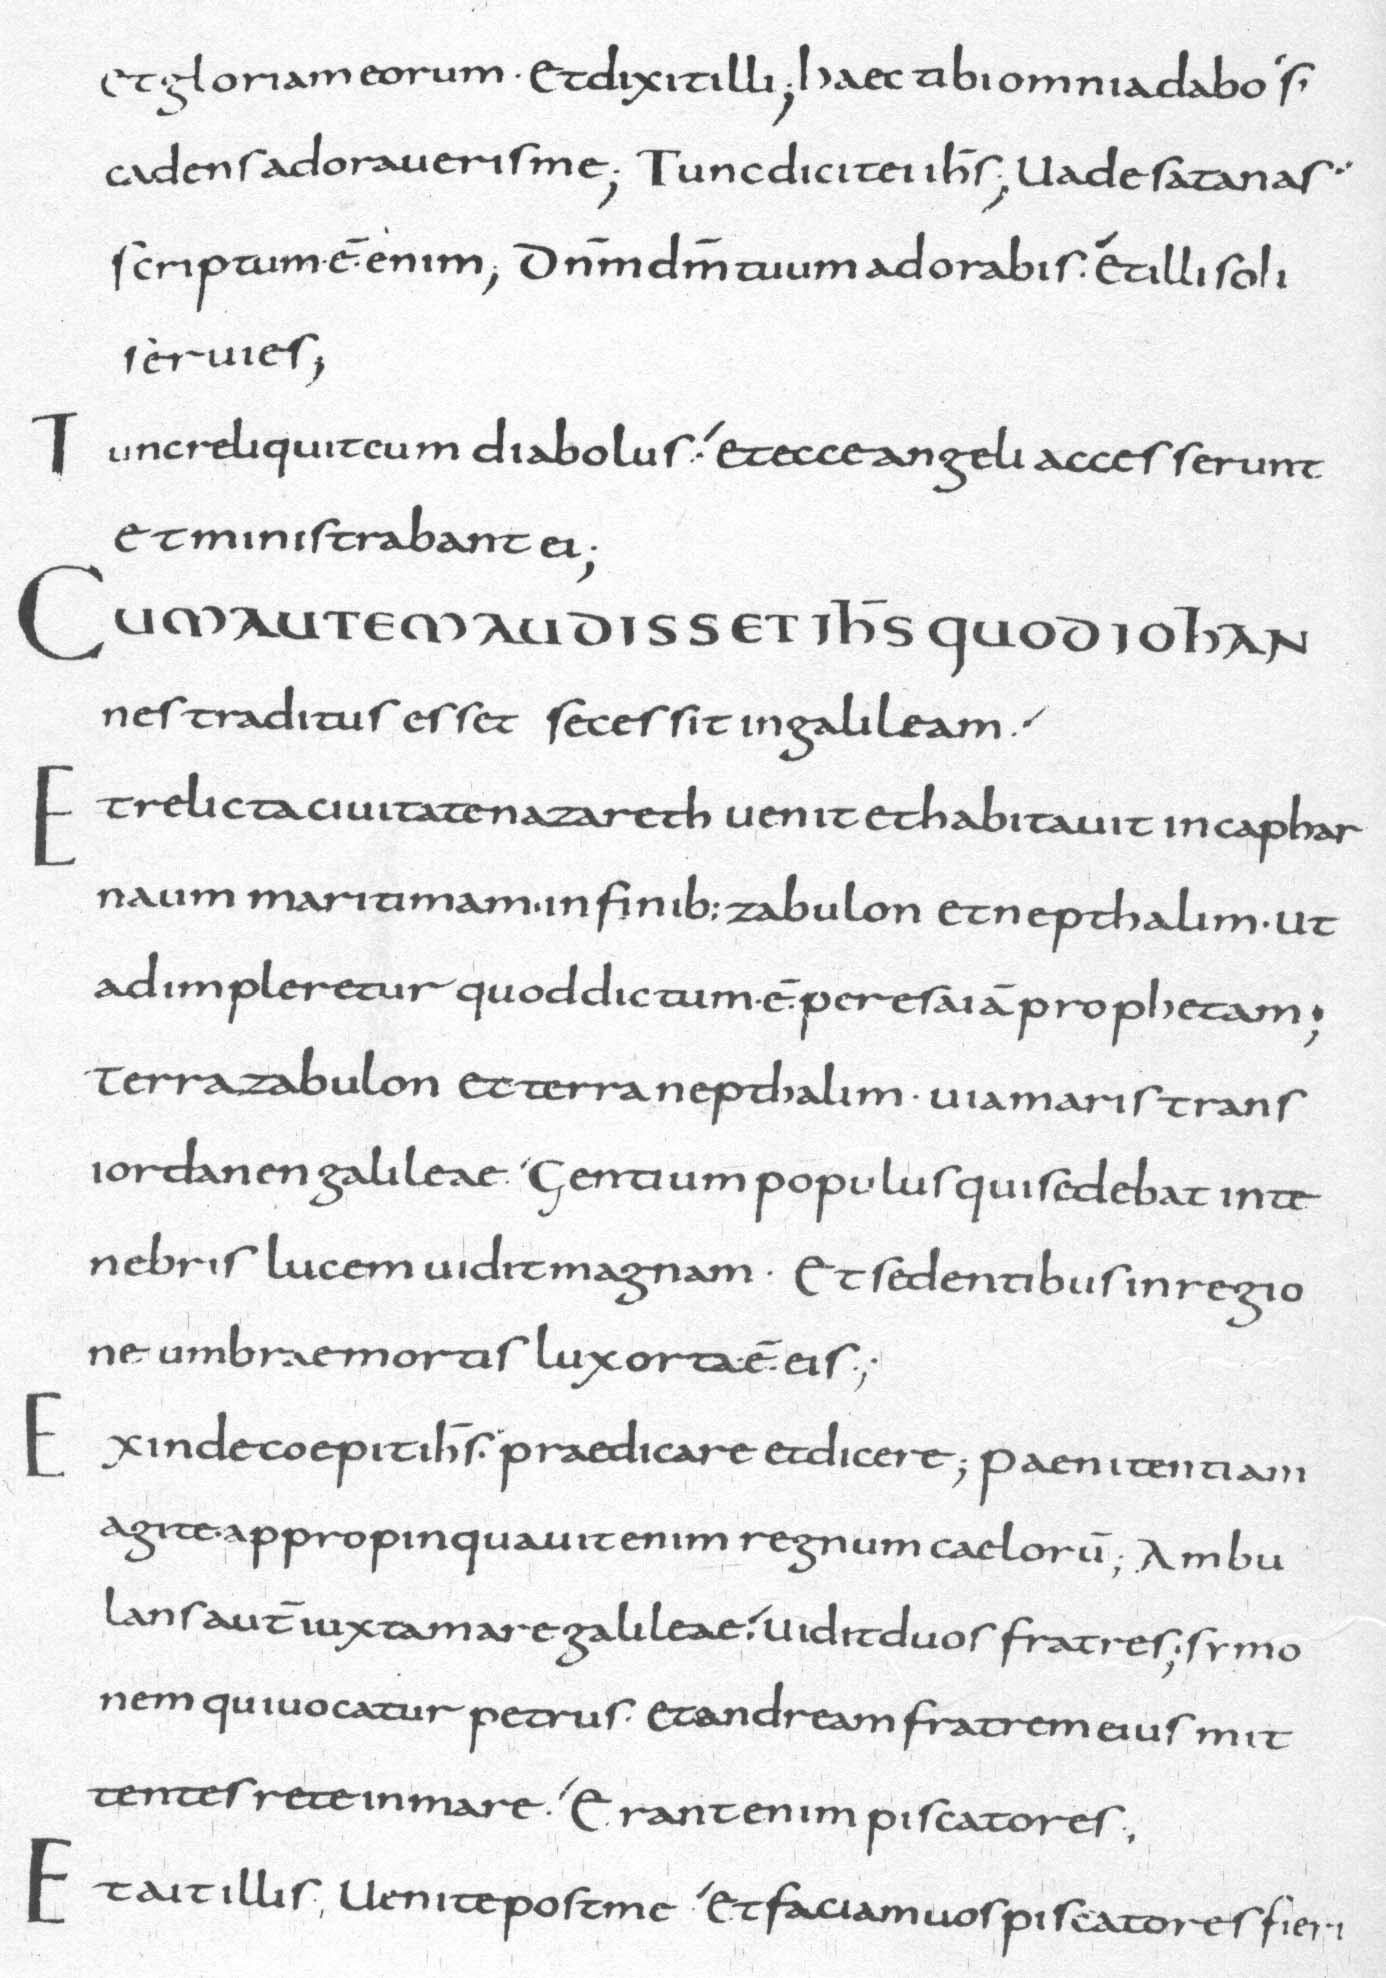 et gloriam eorum · Et dixit illi; haec tibi omnia dabo si
cadens adoraueris me; Tunc dicit ei ih̄s; Uade satanas
scriptum · ē · enim; Dn̄m dm̄ tuum adorabis · et illi soli
seruies;
Tunc reliquit eum diabolus · et ecce angeli accesserunt
et ministrabant ei;
CUM AUTEM AUDISSET IH̄S QUOD IOHAN
nes traditus esset secessit in galileam ·
Et relicta ciuitate nazareth uenit et habitauit in caphar
naum maritimam · in finib: zabulon et nepthalim · Ut
adimpleretur quod dictum · ē · per esaiā prophetam;
Terra zabulon et terra nepthalim · uia maris trans
iordanen galileae · Gentium populus qui sedebat in te
nebris lucem uidit magnam · Et sedentibus in regio
ne umbrae mortis lux orta · ē · eis ·;
Exinde coepit ih̄s · praedicare et dicere; Paenitentiam
agite · appropinquauit enim regnum caelorū; Ambu
lans aut̄ iuxta mare galileae · uidit duos fratres; symo
nem qui uocatur petrus · et andream fratrem eius mit
tentes rete in mare · Erant enim piscatores ·,
Et ait illis, Uenite post me et faciam uos piscatores fieri